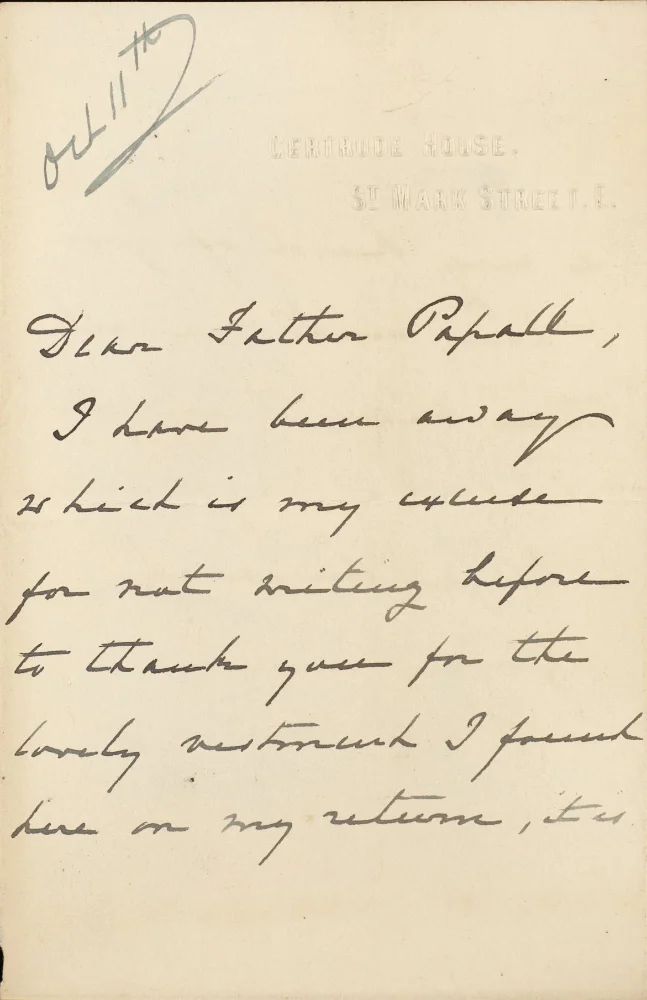 Oct 11th
GERTRUDE HOUSE.
ST MARK STREET. E.
Dear Father Papall,
I have been away
which is my excuse
for not writing before
to thank you for the
lovely vestment I found
here on my return, it is